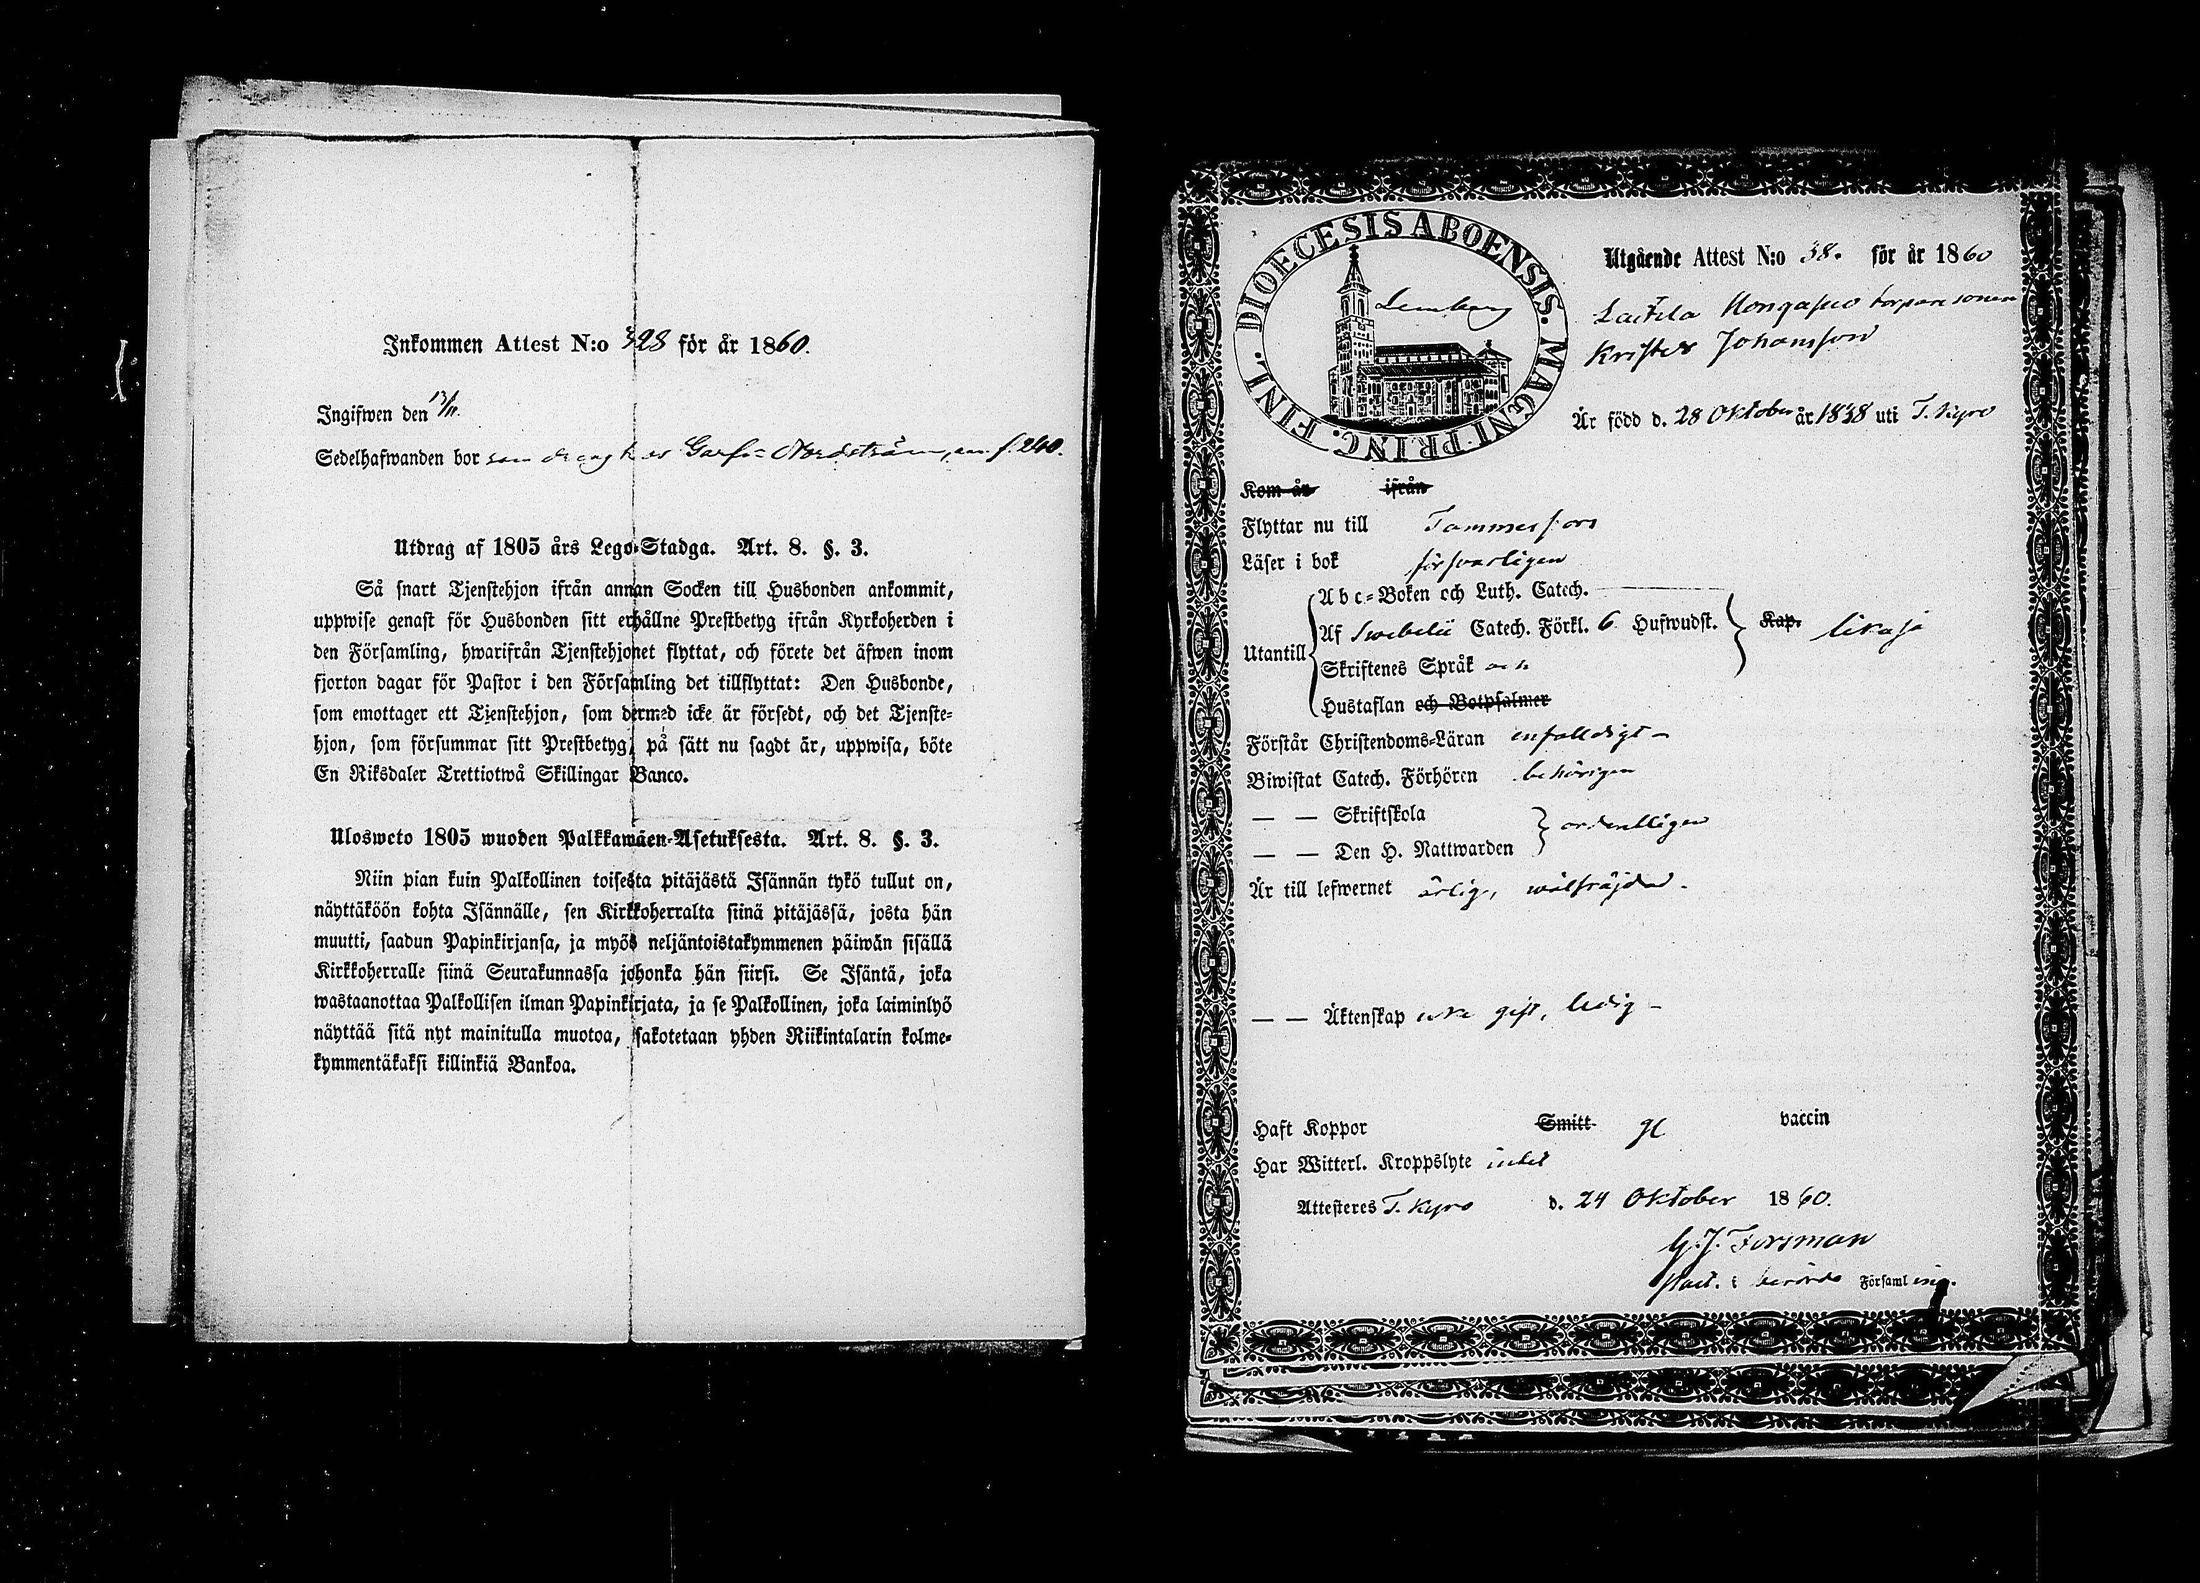 Inkommen Attest N:o 328 för år 1860.
Ingifwen den 13/11.
Sedelhafwanden bor som dräng hos Garfv. Nordström, f. 240.
Utdrag af 1805 års Lego-Stadga. Art. 8. §. 3.
Så snart Tjenstehjon ifrån annan Socken till Husbonden ankommit,
uppwise genast för Husbonden sitt erhållne Prestbetyg ifrån Kyrkoherden i
den Församling, hwarifrån Tjenstehjonet flyttat, och förete det äfwen inom
fjorton dagar för Pastor i den Församling det tillflyttat: Den Husbonde,
som emottager ett Tjenstehjon, som dermed icke är försedt, och det Tjenste-
hjon, som försummar sitt Prestbetyg, på sätt nu sagdt är, uppwisa, böte
En Riksdaler Trettiotwå Skillingar Banco.
Ulosweto 1805 wuoden Palkkawäen-Asetuksesta. Art. 8. §. 3.
Niin pian kuin Palkollinen toisesta pitäjästä Isännän tykö tullut on,
näyttäköön kohta Isännälle, sen Kirkkoherralta siinä pitäjässä, josta hän
muutti, saadun Papinkirjansa, ja myös neljäntoistakymmenen päiwän sisällä
Kirkkoherralle siinä Seurakunnassa johonka hän siirsi. Se Isäntä, joka
wastaanottaa Palkollisen ilman Papinkirjata, ja se Palkollinen, joka laiminlyö
näyttää sitä nyt mainitulla muotoa, sakotetaan yhden Riikintalarin kolme-
kymmentäkaksi killinkiä Bankoa.
DIOECESIS ABOENSIS. MAGNI PRINC. FINL.
Utgående Attest N:o 38. för år 1860
Laitila torparesonen
Krister Johansson
Är född d. 28 Oktober år 1838 uti T. Kyro
Kom år ifrån
Flyttar nu till Tammerfors
Läser i bok försvarligen
Utantill
Abc-Boken och Luth. Catech.
Af Swebelii Catech. Förkl. 6 Hufwudst. Kap. likaså
Skriftenes Språk och
Hustaflan och Botpsalmer
Förstår Christendoms-Läran enfalldigt –
Biwistat Catech. Förhören behörigen
— — Skriftskola
ordentligen
— — Den H. Nattwarden
Är till lefwernet ärlig, wälfräjdad.
— — Äktenskap icke gift, ledig –
Haft Koppor Smitt gl vaccin
Har Witterl. Kroppslyte intet
Attesteres T. Kyro d. 24 Oktober 1860.
G. J. Forsman
Past. i berörde Församling.